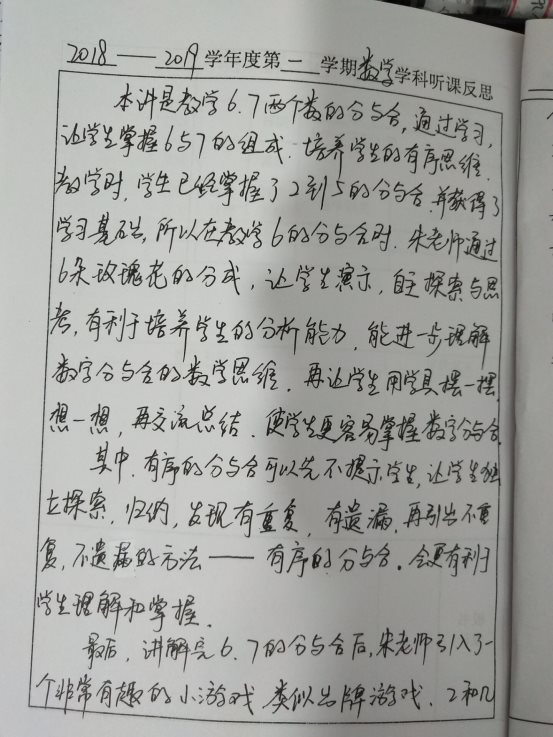 2018——2019学年度第一学期数学学科听课反思
本讲是教学6.7两个数的分与合,通过学习,
让学生掌握6与7的组成.培养学生的有序思维.
教学时.学生已经掌握了2到5的分与合.并获得了
学习基础,所以在教学6的分与合时.朱老师通过
6朵玫瑰花的分成,让学生演示,自主探索与思
考,有利于培养学生的分析能力.能进一步理解
数字分与合的数学思维.再让学生用学具摆一摆.
想一想,再交流总结.使学生更容易掌握数字分与合.
其中.有序的分与合可以先不提示学生,让学生独
立探索,归纳,发现有重复,有遗漏.再引出不重
复,不遗漏的方法——有序的分与合。会更有利于
学生理解和掌握.
最后,讲解完6.7的分与合后,朱老师引入了一
个非常有趣的小游戏.类似出牌游戏.2和几